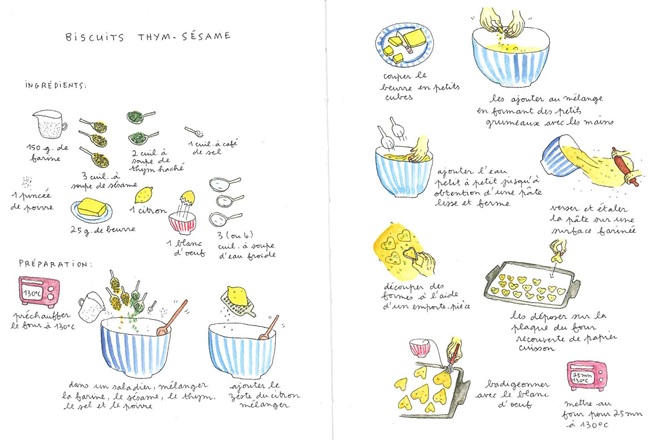 BISCUITS THYM-SÉSAME
INGRÉDIENTS:
150 g. de
farine
3 cuil. à
soupe de sésame
2 cuil. à
soupe de
thym haché
1 cuil. à café
de sel
1 pincée
de poivre
25 g. de beurre
1 citron
1 blanc
d'oeuf
3 (ou 4)
cuil. à soupe
d'eau froide
PRÉPARATION:
130°C
préchauffer
le four à 130°C
dans un saladier, mélanger
la farine, le sésame, le thym,
le sel et le poivre
ajouter le
zeste du citron
mélanger
couper le
beurre en petits
cubes
les ajouter au mélange
en formant des petits
grumeaux avec les mains
ajouter l'eau
petit à petit jusqu'à
obtention d'une pâte
lisse et ferme
verser et étaler
la pâte sur une
surface farinée
découper des
formes à l'aide
d'un emporte-pièce
les déposer sur la
plaque du four
recouverte de papier
cuisson
badigeonner
avec le blanc
d'oeuf
25mn
130°C
mettre au
four pour 25mn
à 130°C